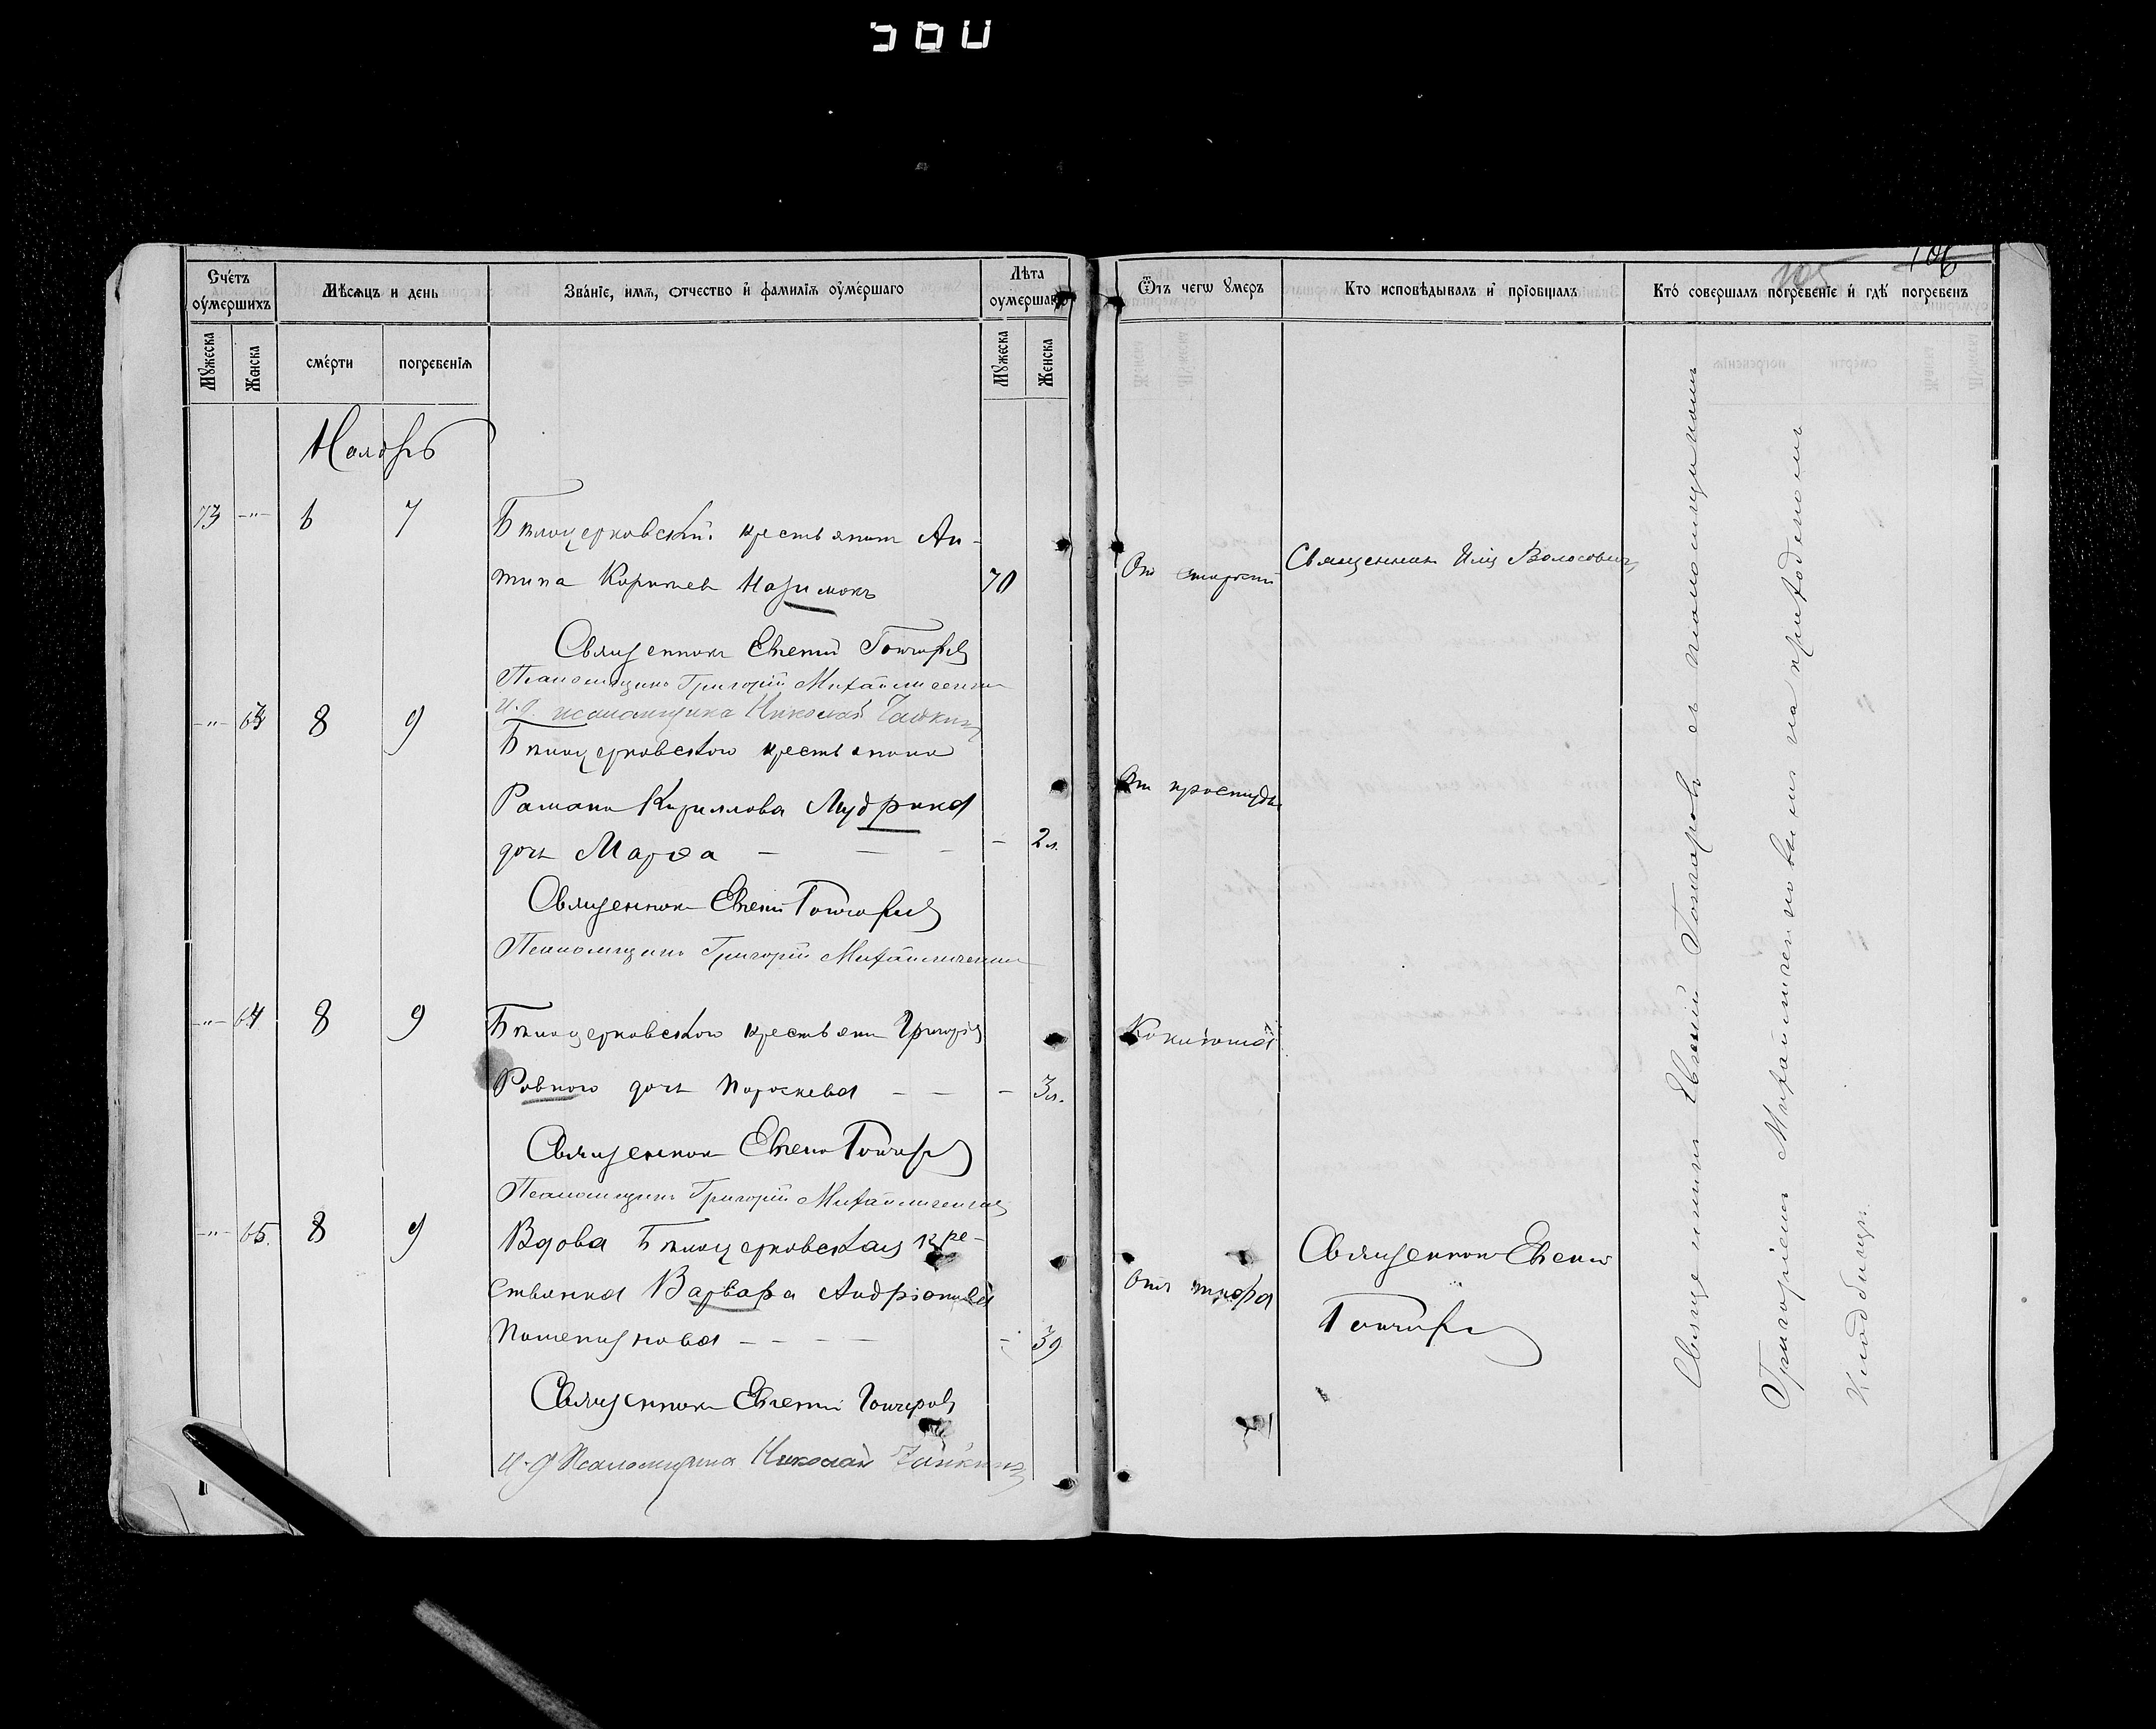 106
105
Счетъ оумершихъ
Мѣсяцъ и день
Званіе, имя, отчество и фамилія оумершаго
Лѣта оумершаго
Ѿъ чегѡ умеръ
Кто исповѣдывалъ и пріобщалъ
Кто совершалъ погребеніе и гдѣ погребенъ
Мужеска
Женска
смерти
погребенія
Мужеска
Женска
Ноябрь
73 -"- 6 7
Бѣлоцерковскій крестьянинъ Ан-
типа Назимокъ 70
Отъ старости
Священникъ Илія Волосовичъ
Священникъ Евгеній Гончаровъ
Псаломщикъ Григорій Михайличенко
И.д. псаломщика Николай Чайкинъ
-"- 63 8 9
Бѣлоцерковскаго крестьянина
Романа Кириллова Мудрика
дочь Марѳа — — — - 2 л.
От простуды
Священникъ Евгеній Гончаровъ
Псаломщикъ Григорій Михайличенко
-"- 64 8 9
Бѣлоцерковскаго крестьянина Григорія
Ровного дочь Параскева — — - 3 л.
Священникъ Евгеній Гончаровъ
Псаломщикъ Григорій Михайличенко
-"- 65. 8 9
Вдова Бѣлоцерковская кре-
стьянка Варвара
— — — — - 39
Отъ тифа
Священникъ Евгеній
Гончаровъ
Священникъ Евгеній Гончаровъ
И.д. Псаломщика Николай Чайкинъ
Священникъ Евгеній Гончаровъ съ псаломщикомъ
Григоріемъ Михайличенковымъ на приходскомъ
кладбищѣ.